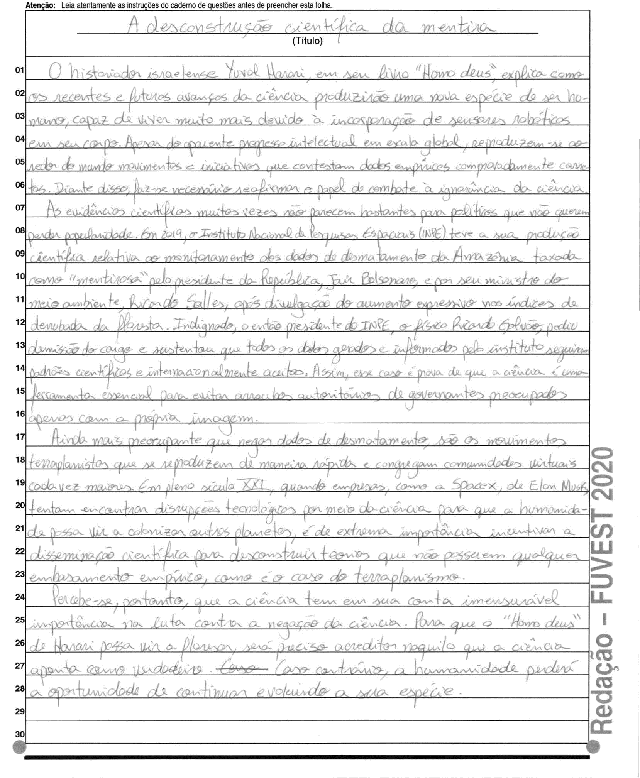 Atenção: Leia atentamente as instruções do caderno de questões antes de preencher esta folha.
A desconstrução científica da mentira
(Título)
01 O historiador israelense Yuval Harari, em seu livro "Homo deus", explica como
02 os recentes e futuros avanços da ciência produzirão uma nova espécie de ser hu-
03 mano, capaz de viver muito mais devido à incorporação de sensores robóticos
04 em seu corpo. Apesar do aparente progresso intelectual em escala global, reproduzem-se ao
05 redor do mundo movimentos e iniciativas que contestam dados empíricos comprovadamente corre-
06 tos. Diante disso, faz-se necessário reafirmar o papel de combate à ignorância da ciência
07 As evidências científicas muitas vezes não parecem bastantes para políticos que não querem
08 perder popularidade. Em 2019, o Instituto Nacional de Pesquisas Espaciais (INPE) teve a sua produção
09 científica relativa ao monitoramento dos dados de desmatamento da Amazônia taxada
10 como "mentirosa" pelo presidente da República, Jair Bolsonaro, e por seu ministro do
11 meio ambiente, Ricardo Salles, após divulgação do aumento expressivo nos índices de
12 derrubada da floresta. Indignado, o então presidente do INPE, o físico Ricardo Galvão, pediu
13 demissão do cargo e sustentou que todos os dados gerados e informados pelo instituto seguiam
14 padrões científicos e internacionalmente aceitos. Assim, esse caso é prova de que a ciência é uma
15 ferramenta essencial para evitar arroubos autoritários de governantes preocupados
16 apenas com a própria imagem.
17 Ainda mais preocupante que negar dados de desmatamento, são os movimentos
18 terraplanistas que se reproduzem de maneira rápida e congregam comunidades virtuais
19 cada vez maiores. Em pleno século XXI, quando empresas, como a Spacex, de Elon Musk,
20 tentam encontrar disrupções tecnológicas por meio da ciência para que a humanida-
21 de possa vir a colonizar outros planetas, é de extrema importância incentivar a
22 disseminação científica para desconstruir teorias que não possuem qualquer
23 embasamento empírico, como é o caso do terraplanismo.
24 Percebe-se, portanto, que a ciência tem em sua conta imensurável
25 importância na luta contra a negação da ciência. Para que o "Homo deus"
26 de Harari possa vir a florescer, será preciso acreditar naquilo que a ciência
27 aponta como verdadeiro. Caso Caso contrário, a humanidade perderá
28 a oportunidade de continuar evoluindo a sua espécie.
29
30
Redação – FUVEST 2020